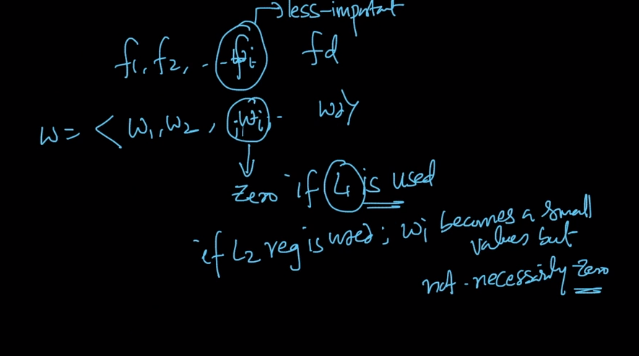 less-important
f1, f2, .. fi fd
w = < w1, w2, .. wi, .. wd>
zero if L1 is used
if L2 reg is used; wi becomes a small
values but
not-necessarily zero